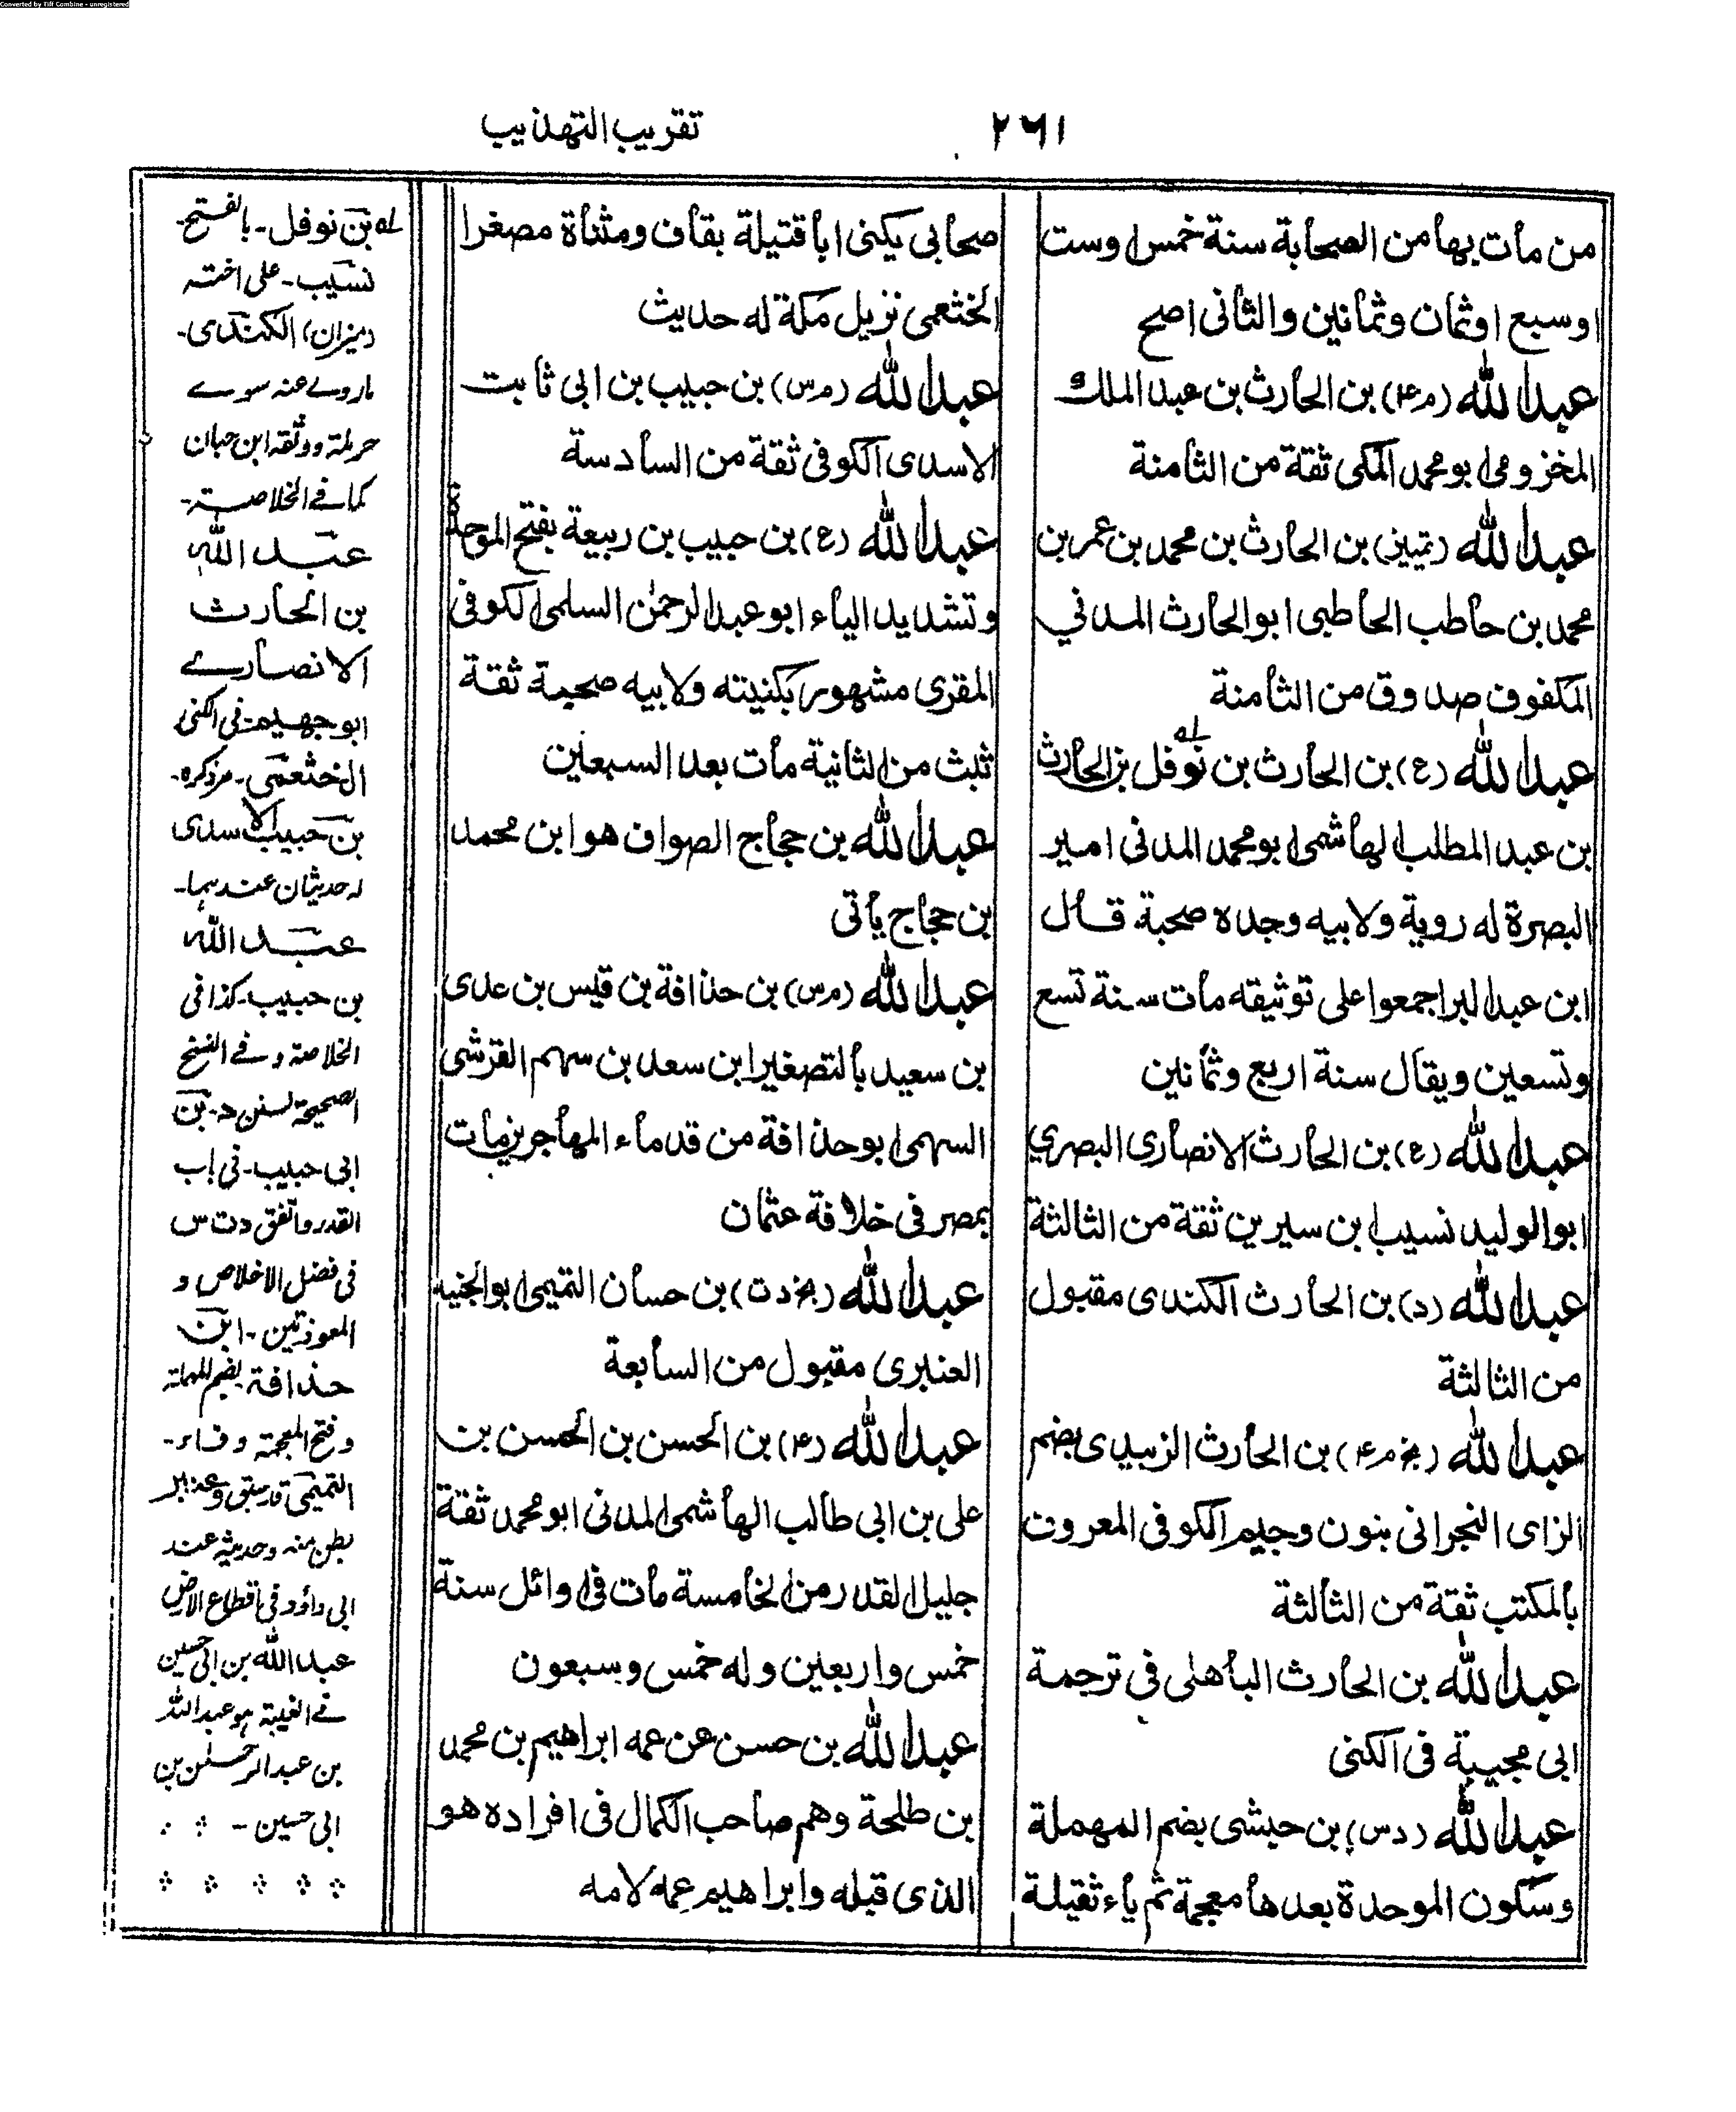 Converted by Tiff Combine - unregistered
٢٦١
تقريب التهذيب
من مات بها من الصحابة سنة خمس اوست
اوسبع اوثمان وثمانين والثانى اصح
عبد الله (م۴) بن الحارث بن عبد الملك
المخزومى ابو محمد المكى ثقة من الثامنة
عبد الله (تمييز) بن الحارث بن محمد بن عمر بن
محمد بن حاطب الحاطبى ابو الحارث المدني
المكفوف صدوق من الثامنة
عبد الله (ع) بن الحارث بن نوفل بن الحارث
بن عبد المطلب الهاشمى ابو محمد المدنى امير
البصرة له روية ولابيه وجده صحبة قال
ابن عبد البر اجمعوا على توثيقه مات سنة تسع
وتسعين ويقال سنة اربع وثمانين
عبد الله (ع) بن الحارث الانصارى البصري
ابو الوليد نسيب ابن سيرين ثقة من الثالثة
عبد الله (د) بن الحارث الكندى مقبول
من الثالثة
عبد الله (بخ م۴) بن الحارث الزبيدى بضم
الزاى النجرانى بنون وجيم الكوفى المعروف
بالمكتب ثقة من الثالثة
عبد الله بن الحارث الباهلى فى ترجمة
ابى مجيبة فى الكنى
عبد الله (دس) بن حبشى بضم المهملة
وسكون الموحدة بعدها معجمة ثم ياء ثقيلة
صحابى يكنى ابا قتيلة بقاف ومثناة مصغرا
الخثعمى نزيل مكة له حديث
عبد الله (م س) بن حبيب بن ابى ثابت
الاسدى الكوفى ثقة من السادسة
عبد الله (ع) بن حبيب بن ربيعة بفتح الموحدة
وتشديد الياء ابو عبد الرحمٰن السلمى الكوفى
المقرى مشهور بكنيته ولابيه صحبة ثقة
ثبت من الثانية مات بعد السبعين
عبد الله بن حجاج الصواف هو ابن محمد
بن حجاج ياتى
عبد الله (م س) بن حذافة بن قيس بن عدى
بن سعيد بالتصغير ابن سعد بن سهم القرشى
السهمى ابو حذافة من قدماء المهاجرين مات
بمصر فى خلافة عثمان
عبد الله (بخ دت) بن حسان التميمى ابو الجنيد
العنبرى مقبول من السابعة
عبد الله (۴) بن الحسن بن الحسن بن
على بن ابى طالب الهاشمى المدنى ابو محمد ثقة
جليل القدر من الخامسة مات فى اوائل سنة
خمس واربعين وله خمس وسبعون
عبد الله بن حسن عن عمه ابراهيم بن محمد
بن طلحة وهم صاحب الكمال فى افراده هو
الذى قبله وابراهيم عمه لامه
له بن نوفل - بالفتح -
نسيب - على اخته
(ميزان) الكندى -
ماروے عنه سوے
حرملة ووثقه ابن حبان
كما فے الخلاصة -
عبد الله
بن الحارث
الانصارے
ابو جهيم - فى الكنى
الخثعمى - مر ذكره -
بن حبيب الاسدى
له حديثان عندهما -
عبد الله
بن حبيب - كذا فى
الخلاصة وفے النسخ
الصحيحة لسنن د - بن
ابى حبيب - فى باب
القدر واتفق دت س
فى فضل الاخلاص و
المعوذتين - ابن
حذافة بضم المهملة
وفتح المعجمة وفاء -
التميمى
بطن منه وحديثه عند
ابى داؤد فى اقطاع الارض
عبد الله بن ابى حسين
فے الغيبة هو عبد الله
بن عبد الرحمٰن بن
ابى حسين -